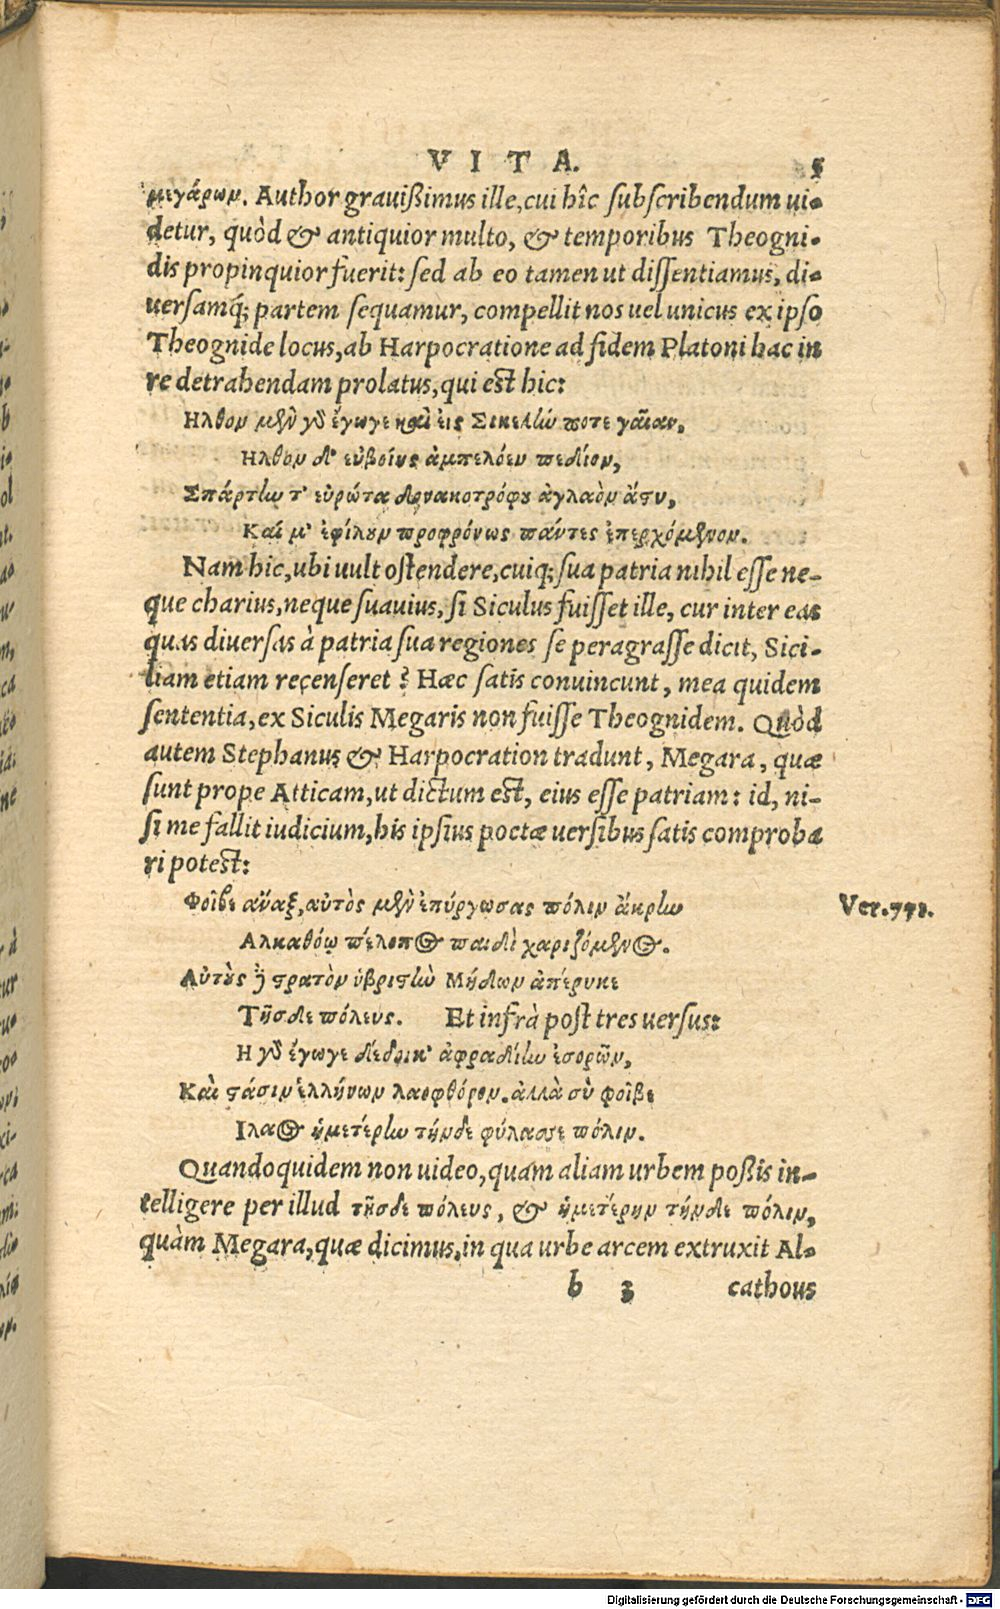 VITA. 5
μεγάρων. Author grauißimus ille, cui hîc subscribendum ui-
detur, quòd & antiquior multo, & temporibus Theogni-
dis propinquior fuerit: sed ab eo tamen ut dissentiamus, di-
uersamq́; partem sequamur, compellit nos uel unicus ex ipso
Theognide locus, ab Harpocratione ad fidem Platoni hac in
re detrahendam prolatus, qui est hic:
Ηλθον μὲν γὸ ἔγωγε καὶ εἰς Σικελίω ποτε γαῖαν,
Ηλθον δ' εὐβοίης ἀμπελόεν πεδίον,
Σπάρτίω τ' εὐρώτα δονακοτρόφου ἀγλαὸν ἄστυ,
Καί μ' ἐφίλουν προφρόνως πάντες ἐπερχόμενον.
Nam hic, ubi uult ostendere, cuiq; sua patria nihil esse ne-
que charius, neque suauius, si Siculus fuisset ille, cur inter eas
quas diuersas à patria sua regiones se peragrasse dicit, Sici-
liam etiam recenseret? Hæc satis conuincunt, mea quidem
sententia, ex Siculis Megaris non fuisse Theognidem. Quòd
autem Stephanus & Harpocration tradunt, Megara, quæ
sunt prope Atticam, ut dictum est, eius esse patriam: id, ni-
si me fallit iudicium, his ipsius poetæ uersibus satis comproba
ri potest:
Φοῖβε ἄναξ, αὐτὸς μὲν ἐπύργωσας πόλιν ἄκρίω Ver. 771.
Αλκαθόῳ πέλοπος παιδὶ χαριζόμενος.
Αὐτὸς δὲ στρατὸν ὑβριστίω Μήδων ἀπέρυκε
Τῆσδε πόλευς. Et infrà post tres uersus:
Η γὸ ἔγωγε δέδοικ' ἀφραδίίω ἐσορῶν,
Καὶ στάσιν ἑλλήνων λαοφθόρον. ἀλλὰ σὺ φοῖβε
Ιλαος ἡμετέρίω τήνδε φύλασσε πόλιν.
Quandoquidem non uideo, quam aliam urbem poßis in-
telligere per illud τῆσδε πόλευς, & ἡμετέρην τήνδε πόλιν,
quàm Megara, quæ dicimus, in qua urbe arcem extruxit Al-
b 3 cathous
Digitalisierung gefördert durch die Deutsche Forschungsgemeinschaft - DFG